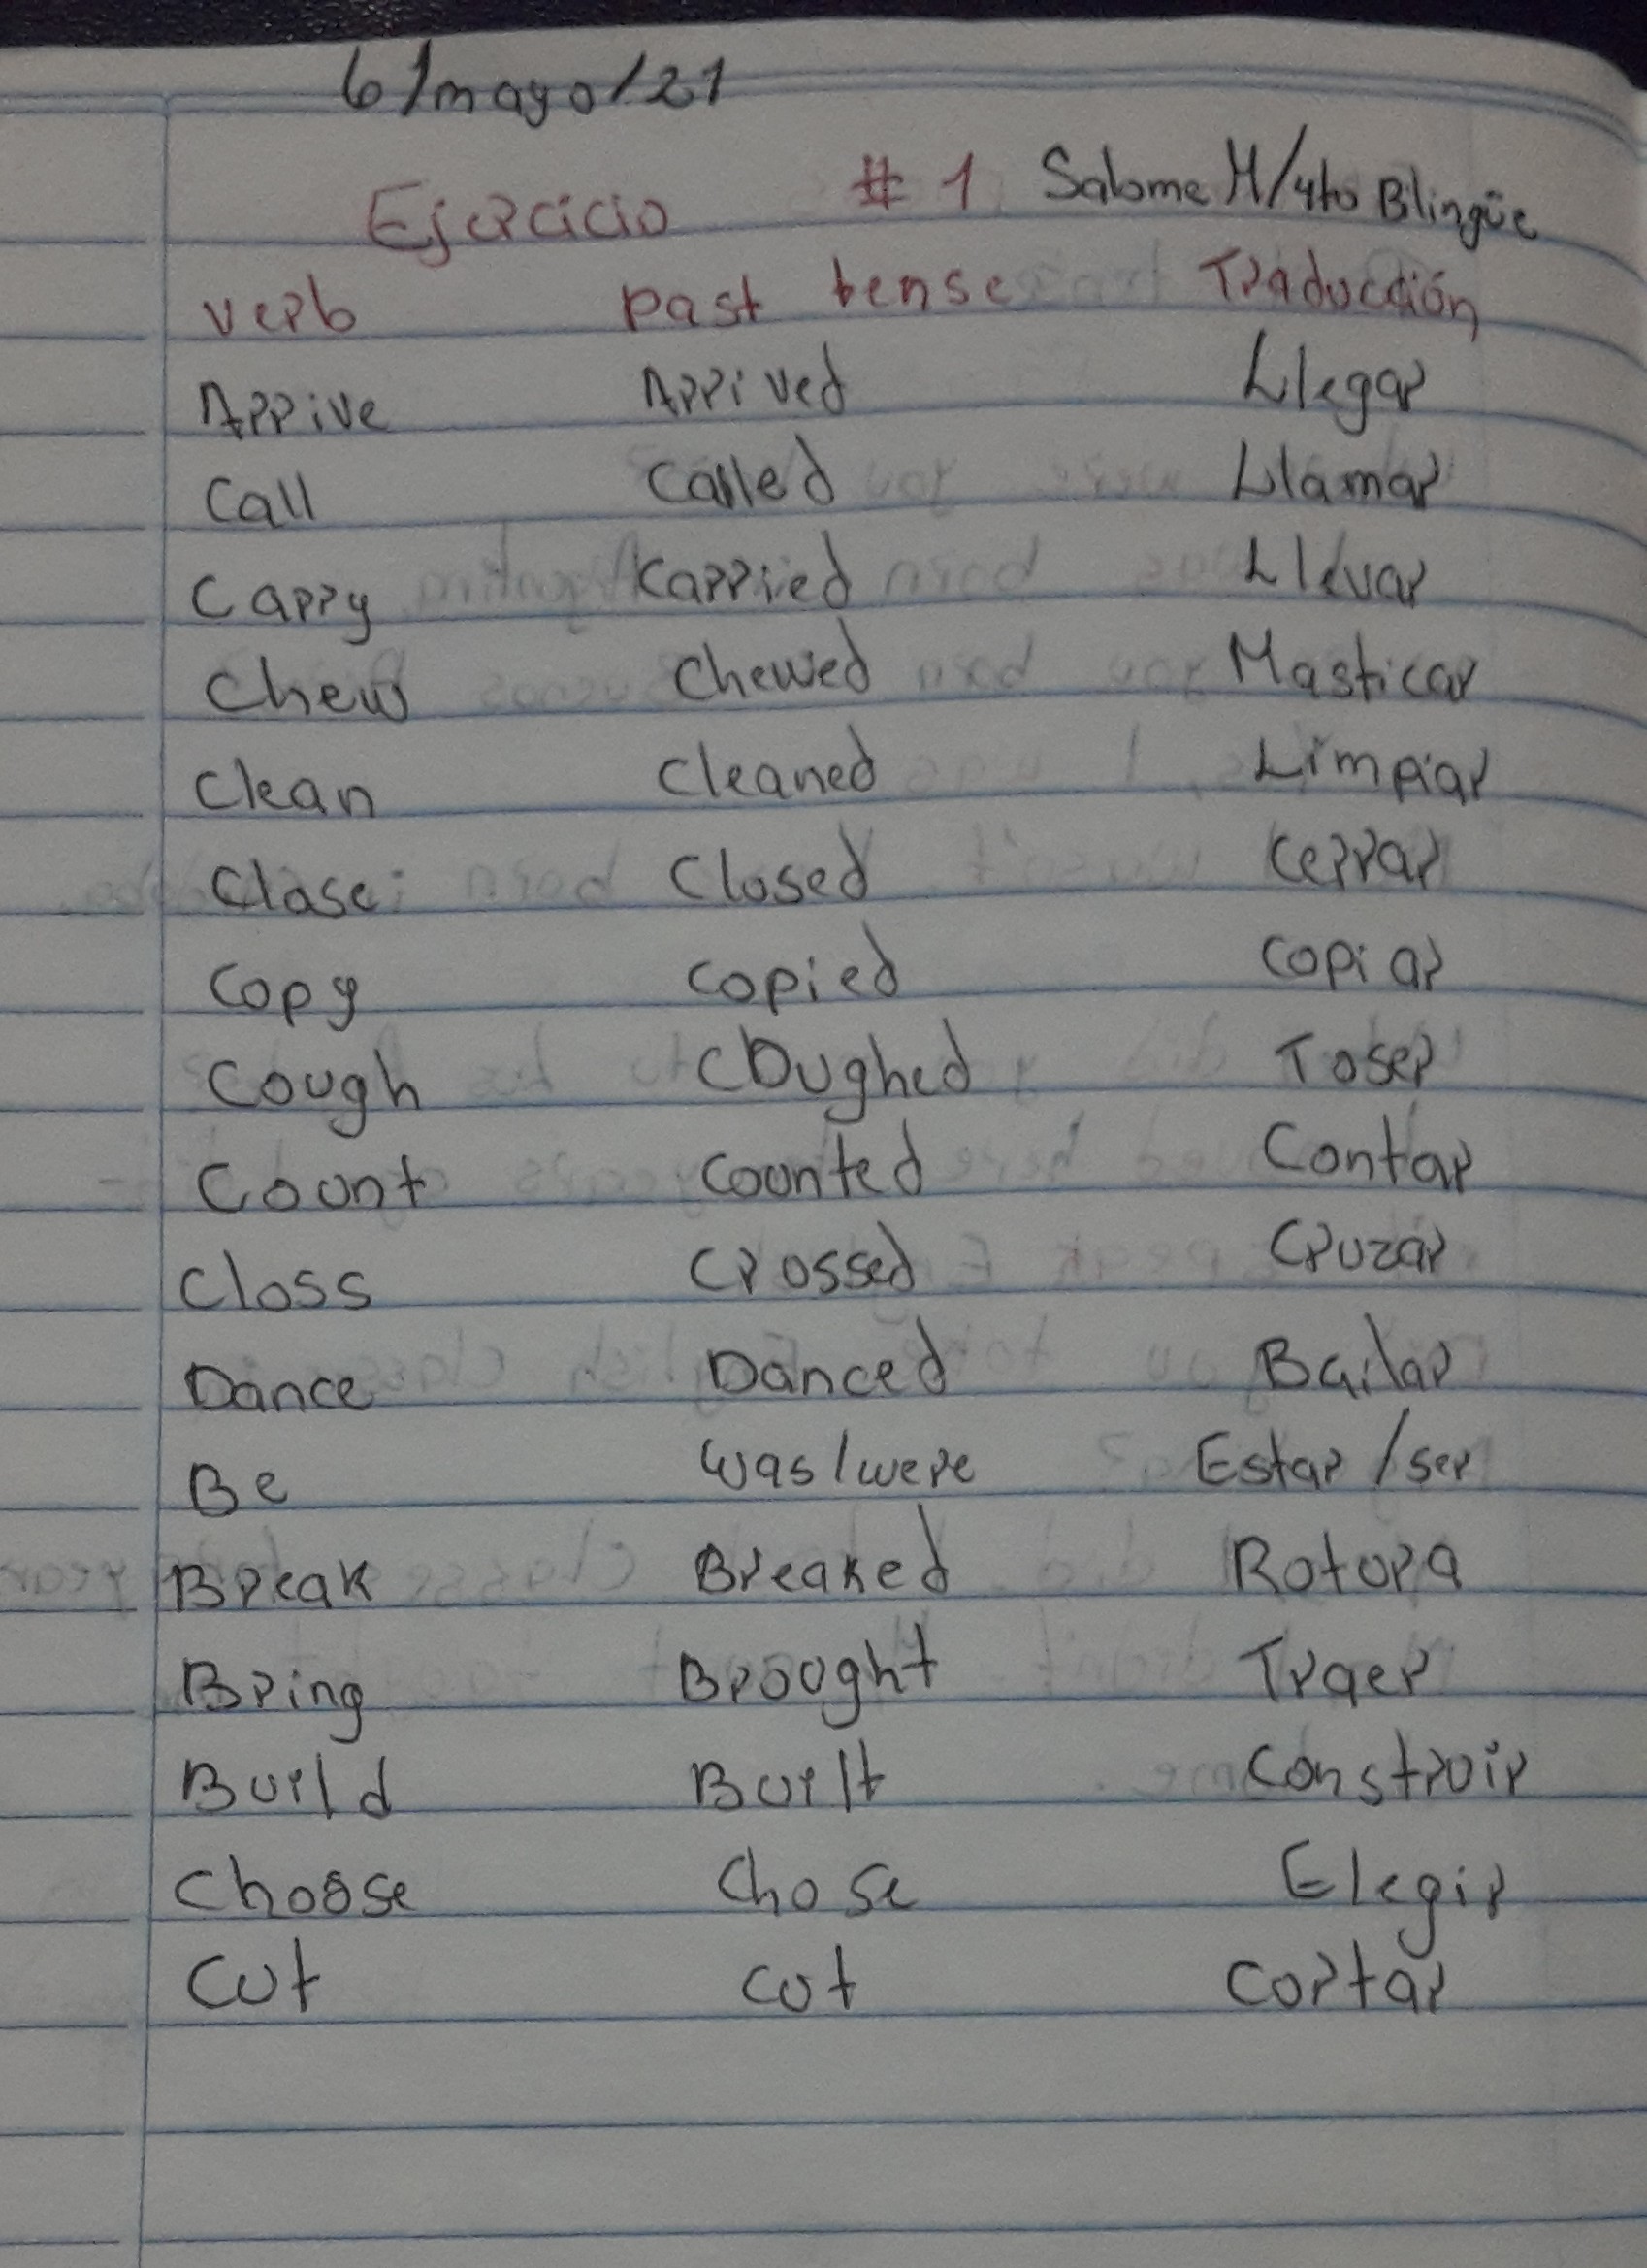 6/mayo/21
Ejercicio #1 Salome M/4to Bilingüe
verb past tense Traducción
Arrive Arrived Llegar
Call Called Llamar
Carry Carried Llevar
Chew Chewed Masticar
Clean Cleaned Limpiar
Close Closed Cerrar
Copy Copied Copiar
Cough Coughed Toser
Count Counted Contar
Closs Crossed Cruzar
Dance Danced Bailar
Be Was/were Estar/ser
Break Breaked Rotura
Bring Brought Traer
Build Built Construir
Choose Chose Elegir
Cut Cut Cortar